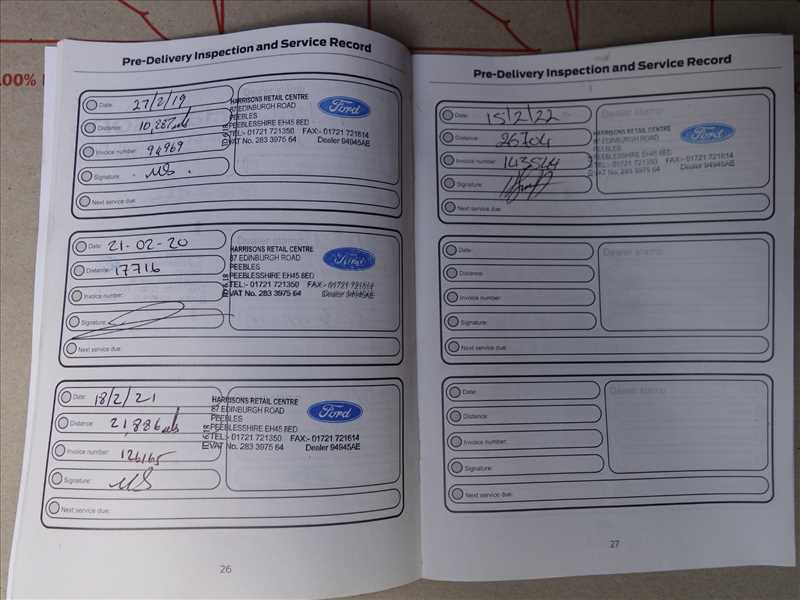 100%
Pre-Delivery Inspection and Service Record
Date: 27/2/19
Distance: 10,287 mls
Invoice number: 94969
Signature: MS.
Next service due:
HARRISONS RETAIL CENTRE
87 EDINBURGH ROAD
PEEBLES
PEEBLESSHIRE EH45 8ED
TEL:- 01721 721350 FAX:- 01721 721614
VAT No. 283 3975 64 Dealer 94945AE
Ford
Date: 21-02-20
Distance: 17716
Invoice number:
Signature:
Next service due:
HARRISONS RETAIL CENTRE
87 EDINBURGH ROAD
PEEBLES
PEEBLESSHIRE EH45 8ED
TEL:- 01721 721350 FAX:- 01721 721614
VAT No. 283 3975 64 Dealer 94945AE
Ford
Date: 18/2/21
Distance: 21,886 mls
Invoice number: 126165
Signature: MS
Next service due:
HARRISONS RETAIL CENTRE
87 EDINBURGH ROAD
PEEBLES
PEEBLESSHIRE EH45 8ED
TEL:- 01721 721350 FAX:- 01721 721614
VAT No. 283 3975 64 Dealer 94945AE
Ford
26
Pre-Delivery Inspection and Service Record
Date: 15/2/22
Distance: 26704
Invoice number: 143544
Signature:
Next service due:
Dealer stamp
HARRISONS RETAIL CENTRE
87 EDINBURGH ROAD
PEEBLES
PEEBLESSHIRE EH45 8ED
TEL:- 01721 721350 FAX:- 01721 721614
VAT No. 283 3975 64 Dealer 94945AE
Ford
Date:
Distance:
Invoice number:
Signature:
Next service due:
Dealer stamp
Date:
Distance:
Invoice number:
Signature:
Next service due:
Dealer stamp
27